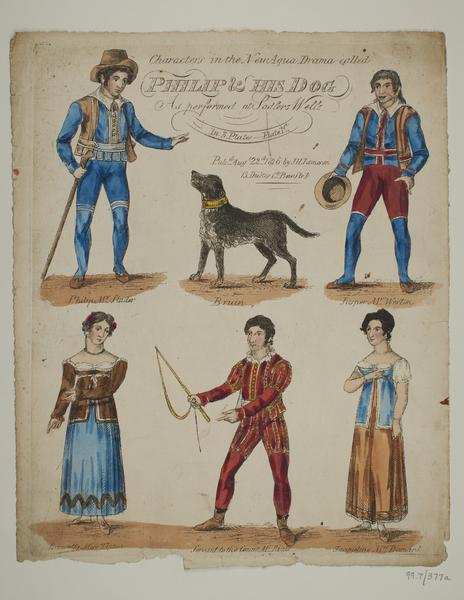 Characters in the New Aqua Drama called
PHILIP & HIS DOG
As performed at Sadlers Wells
In 3 Plates – Plate 1st
Pubd. Augt. 22d. 1816 by J.H. Jameson
13, Dukes Ct. Bow St.
Philip Mr.
Bruin
Jasper Mr. Weston
Servant to the Count Mr.
Jaqueline Mrs.
99.7/377a